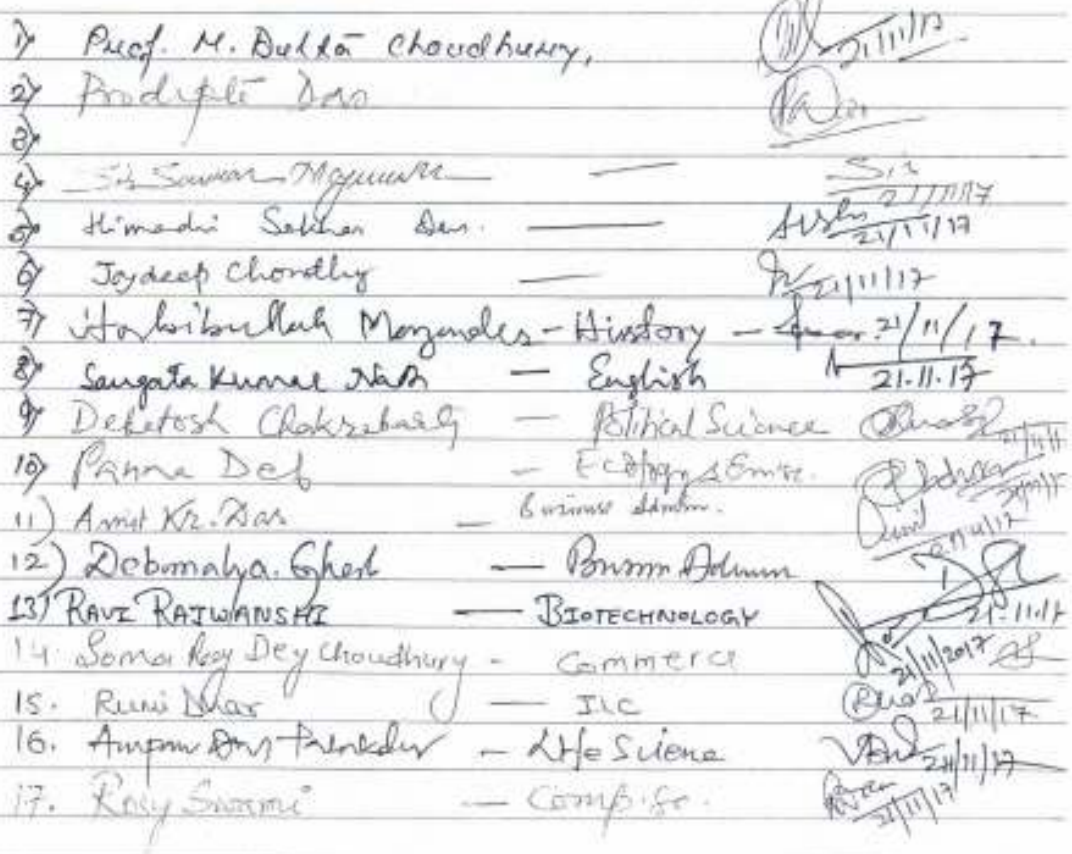 1) Prof. M. Dutta Choudhury, 21/11/17
2) Das
3)
4) Sib Sankar Majumder — 21/11/17
5) Himadri Sekhar Das. — 21/11/17
6) Joydeep Choudhury — 21/11/17
7) Habibullah Mazumder - History - 21/11/17.
8) Saugata Kumar Nath — English 21.11.17
9) Debotosh Chakraborty — Political Science
10) Panna Deb - Ecology & Env. 
11) Amit Kr. Das — Business Admn. 21/11/17
12) Debomalya Ghosh — Busin Admn 21.11.17
13) RAVI RAJWANSHI — BIOTECHNOLOGY 21/11/2017
14. Soma Roy Dey Choudhury - Commerce
15. Rumi Dhar — ILC 21/11/17
16. Anupam Das Talukdar - Life Science 21/11/17
17. Rosy Swami — Comp. Sc. 21/11/17